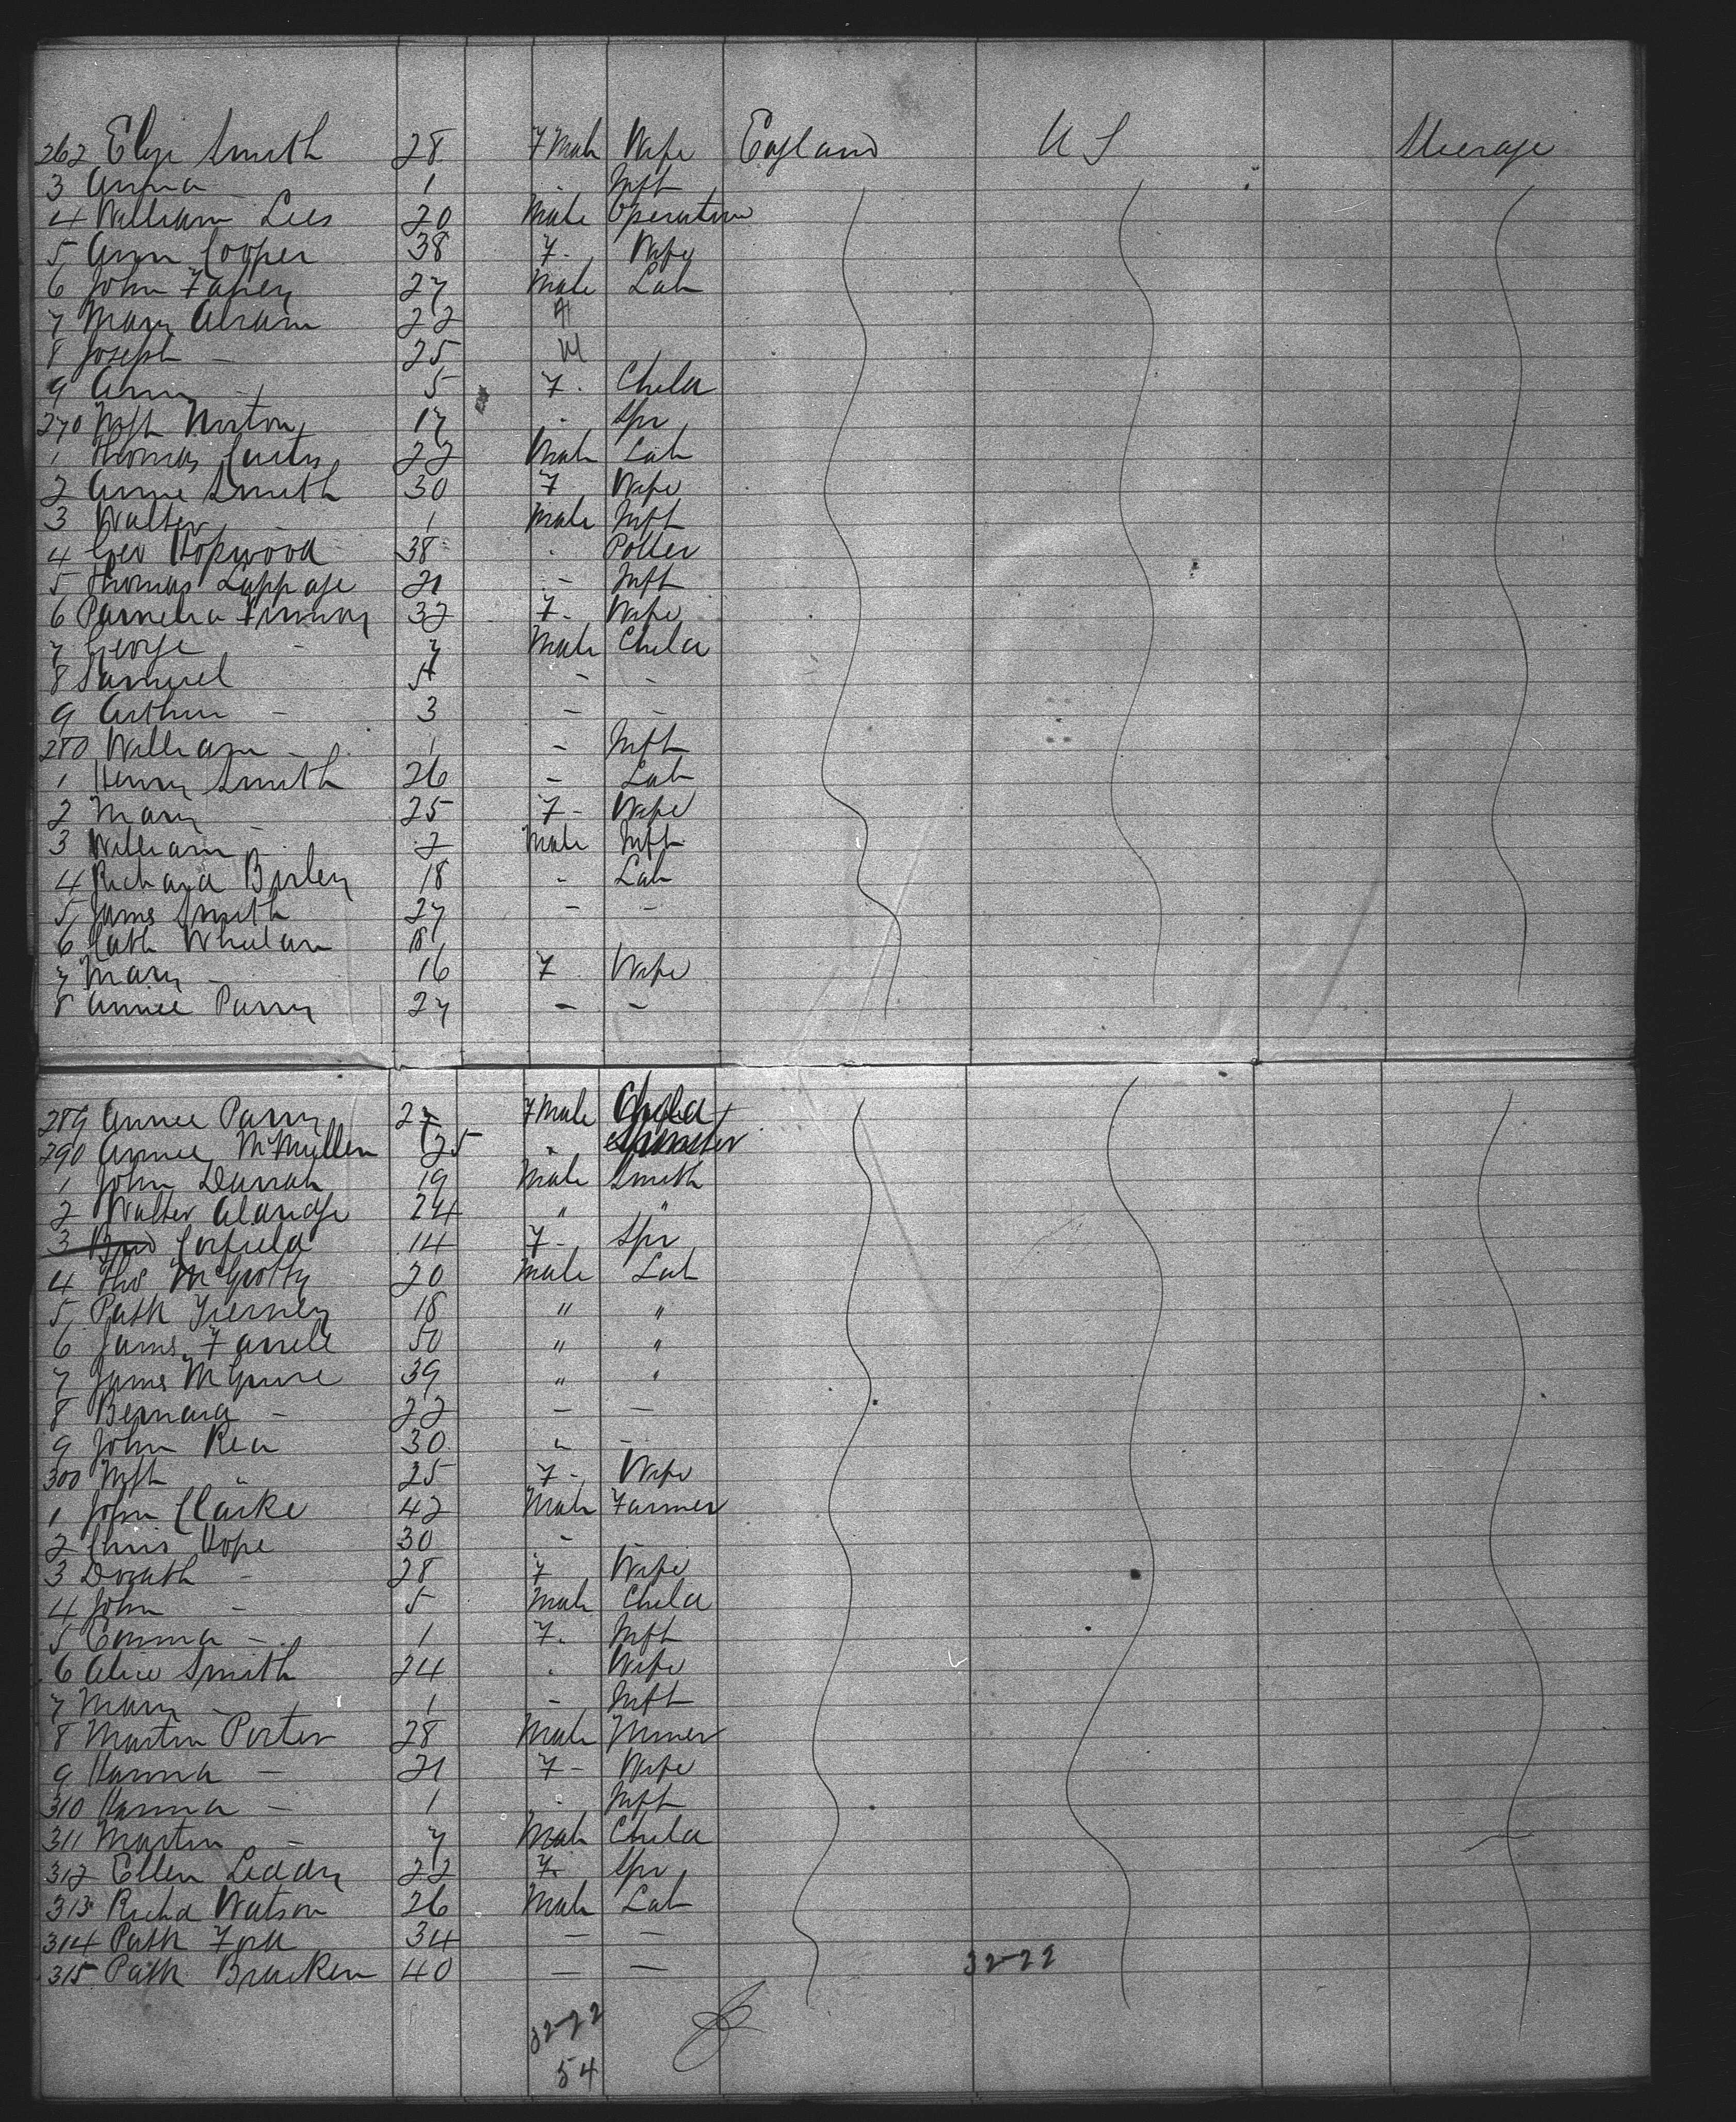 262 Eliza Smith 28 Fmale Wife England U S Steerage
3 Anna 1 . Inft
4 William Lees 20 Male Operative
5 Ann Cooper 38 F. Wife
6 John Fahey 27 Male Lab
7 Mary Abram 22 H
8 Joseph - 25 M
9 Ann - 5 F. Child
270 Mrs Norton 17 . Spr
1 Thomas Curtis 22 Male Lab
2 Annie Smith 30 F Wife
3 Walter - 1 Male Inft
4 Geo Hopwood 38 . Potter
5 Thomas Lappage 21 - Inft
6 Pamelia 32 F. Wife
7 George - 7 Male Child
8 Samuel 5 - -
9 Arthur - 3 - -
280 William - 1 - Inft
1 Henry Smith 26 - Lab
2 Mary - 25 F- Wife
3 William - 2 Male Inft
4 Richard Birley 18 - Lab
5 James Smith 27 - -
6 Cath Whelan 18
7 Mary - 16 F Wife
8 Annie Parry 27 - -
289 Annie Parry 27 Fmale Child
290 Annie McMullen 25 " Spinster
1 John Darrah 19 Male Smith
2 Walter Alandge 24 " "
3 Corfield 14 F- Spr
4 Thos McGrotty 20 Male Lab
5 Patk Tierney 18 " "
6 James Farrell 50 " "
7 James McGuire 39 " "
8 Bernard - 22 - -
9 John Rea 30 " -
300 Mrs " 25 F- Wife
1 John Clarke 42 Male Farmer
2 Chris Hope 30 - -
3 Dorath - 28 F Wife
4 John - 5 Male Child
5 Emma - 1 F. Inft
6 Alice Smith 24 . Wife
7 Mary - 1 - Inft
8 Martin Porter 28 Male Miner
9 Hanna - 21 F- Wife
310 Hanna - 1 . Inft
311 Martin - 7 Male Child
312 Ellen Leddy 22 F. Spr
313 Richd Watson 26 Male Lab
314 Patk 34 - -
315 Patk Bracken 40 - - 32-22
32-22
54